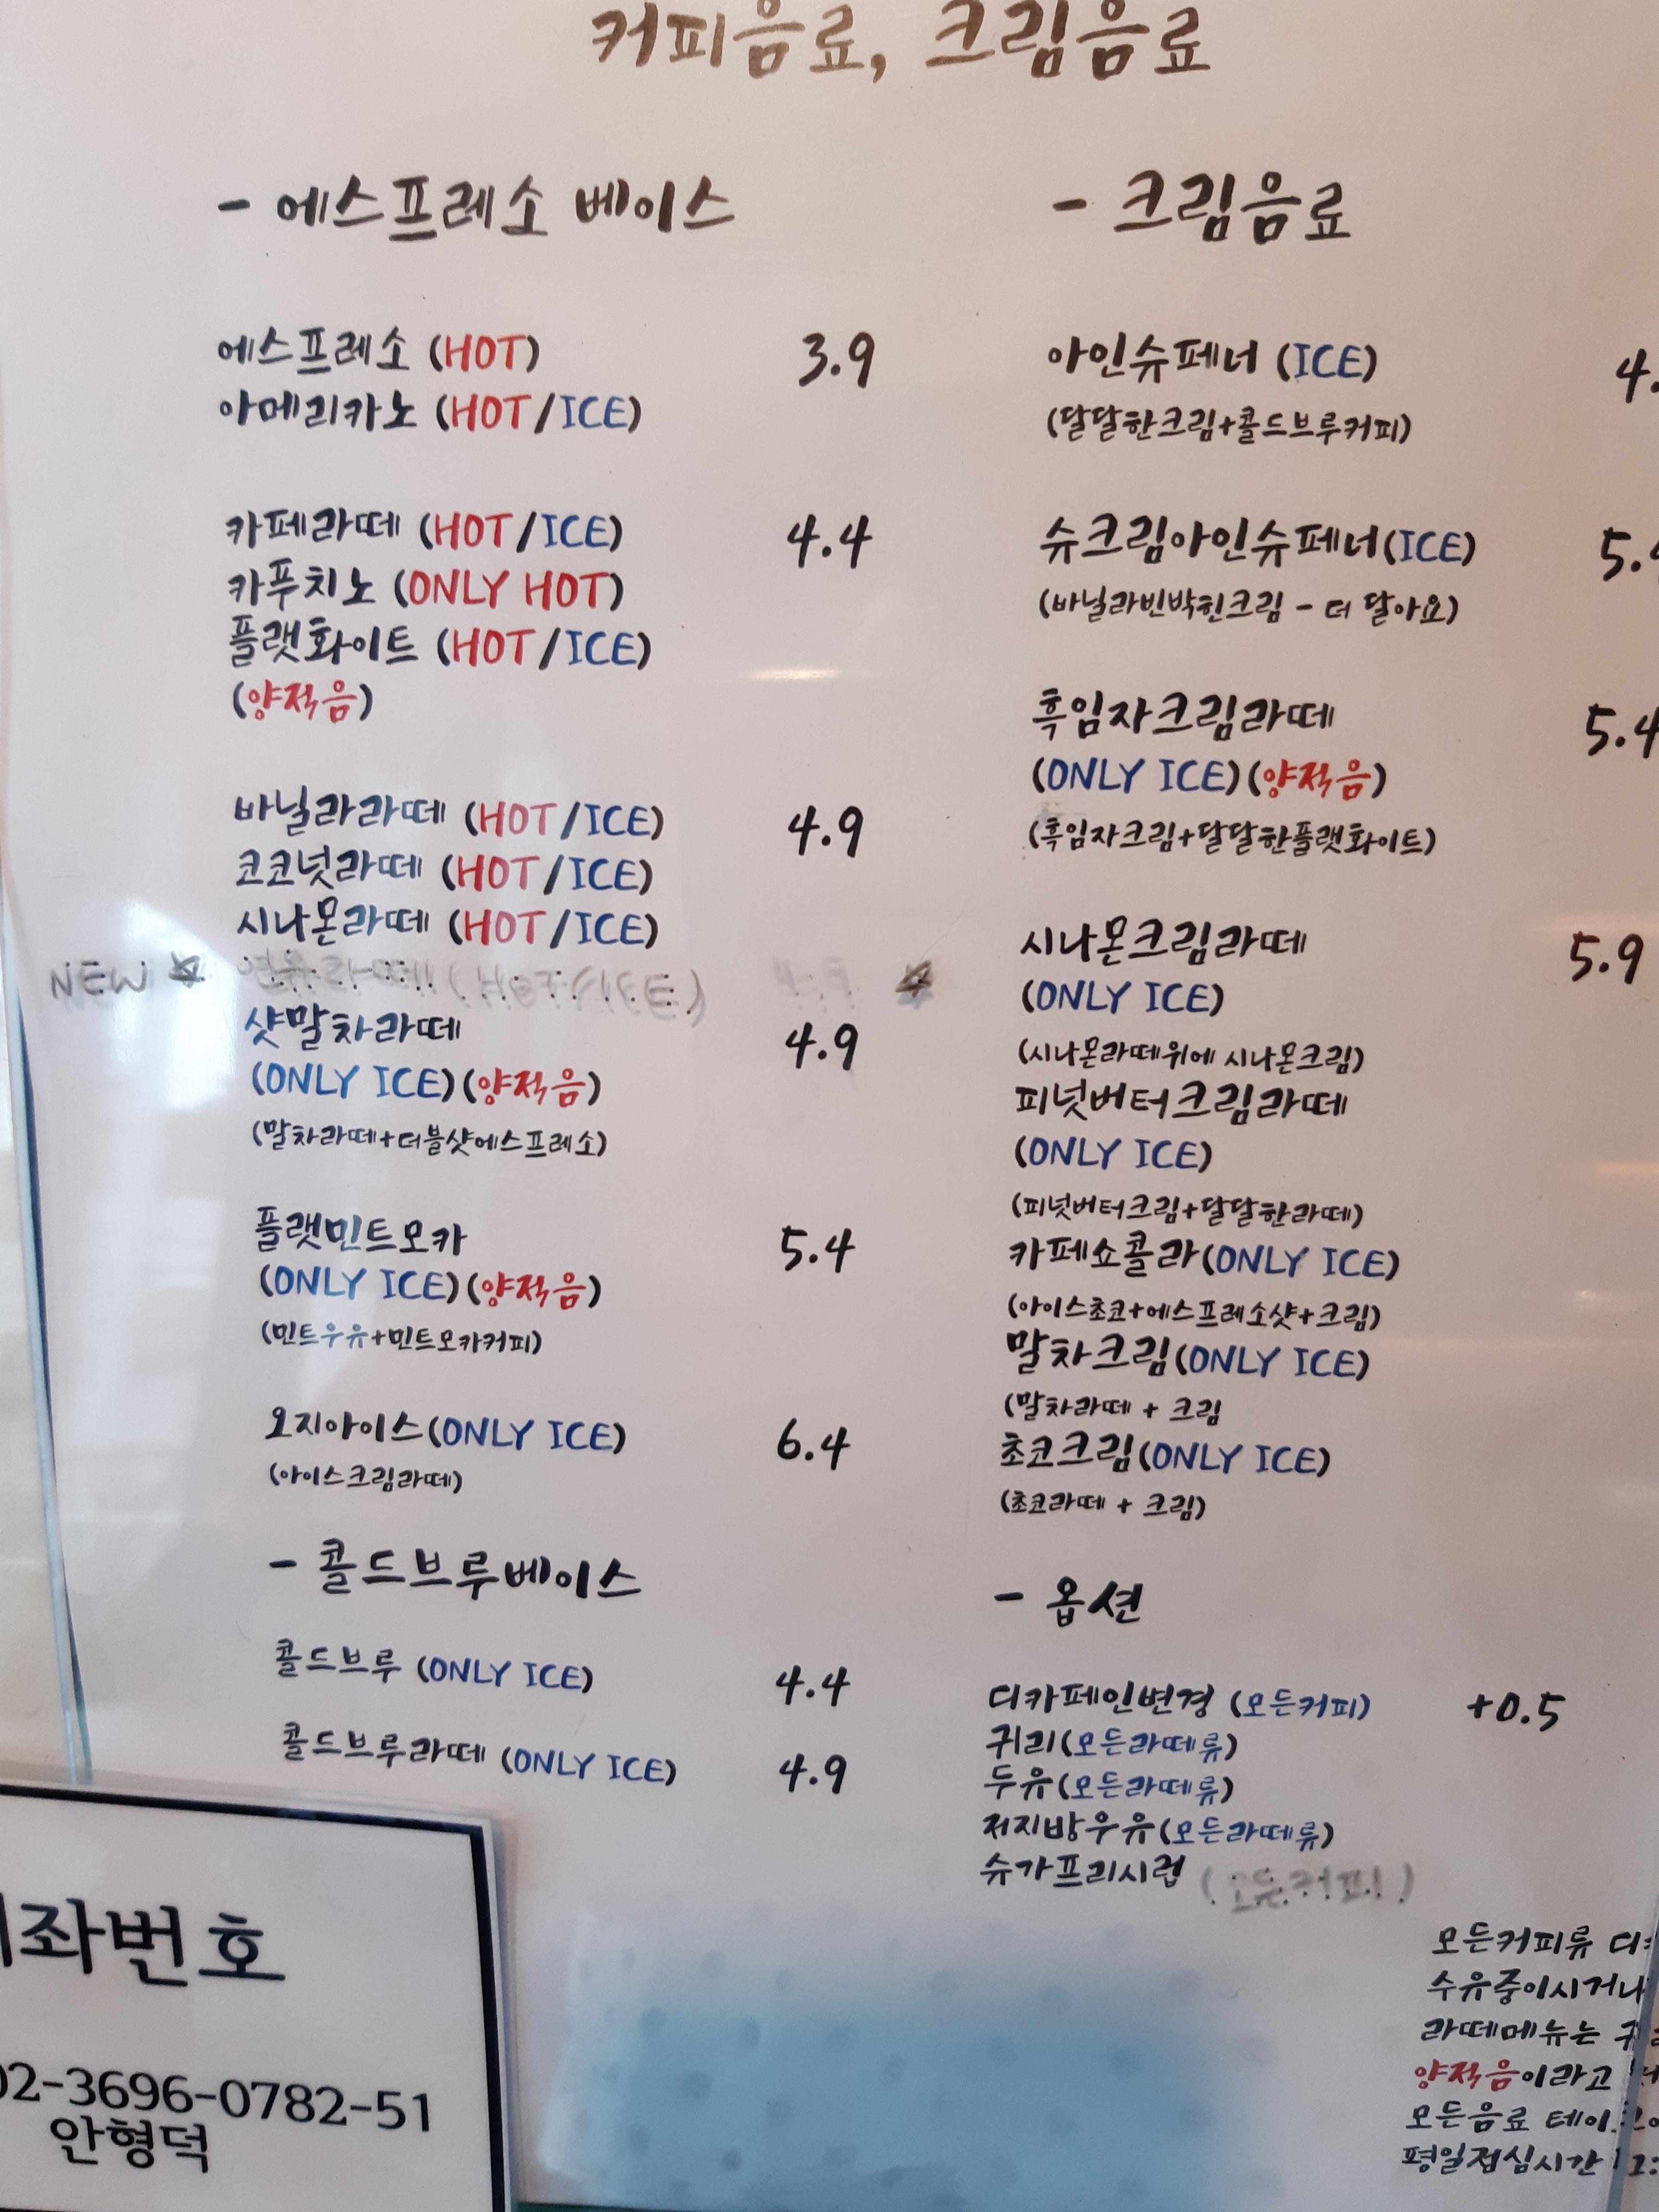 커피음료, 크림음료
- 에스프레소 베이스
에스프레소 (HOT) 3.9
아메리카노 (HOT/ICE)
카페라떼 (HOT/ICE) 4.4
카푸치노 (ONLY HOT)
플랫화이트 (HOT/ICE)
(양적음)
바닐라라떼 (HOT/ICE) 4.9
코코넛라떼 (HOT/ICE)
시나몬라떼 (HOT/ICE)
NEW ☆ 연유라떼 (HOT/ICE) ☆
샷말차라떼 4.9
(ONLY ICE)(양적음)
(말차라떼+더블샷에스프레소)
플랫민트모카 5.4
(ONLY ICE)(양적음)
(민트우유+민트모카커피)
오지아이스(ONLY ICE) 6.4
(아이스크림라떼)
- 콜드브루베이스
콜드브루 (ONLY ICE) 4.4
콜드브루라떼 (ONLY ICE) 4.9
- 크림음료
아인슈페너 (ICE) 4.
(달달한크림+콜드브루커피)
슈크림아인슈페너(ICE) 5.
(바닐라빈박힌크림 - 더 달아요)
흑임자크림라떼 5.4
(ONLY ICE)(양적음)
(흑임자크림+달달한플랫화이트)
시나몬크림라떼 5.9
(ONLY ICE)
(시나몬라떼위에 시나몬크림)
피넛버터크림라떼
(ONLY ICE)
(피넛버터크림+달달한라떼)
카페쇼콜라(ONLY ICE)
(아이스초코+에스프레소샷+크림)
말차크림(ONLY ICE)
(말차라떼 + 크림
초코크림(ONLY ICE)
(초코라떼 + 크림)
- 옵션
디카페인변경 (모든커피) +0.5
귀리(모든라떼류)
두유(모든라떼류)
저지방우유(모든라떼류)
슈가프리시럽 (모든커피)
모든커피류 디
수유중이시거나
라떼메뉴는
양적음이라고
모든음료 테이
평일점심시간
좌번호
02-3696-0782-51
안형덕